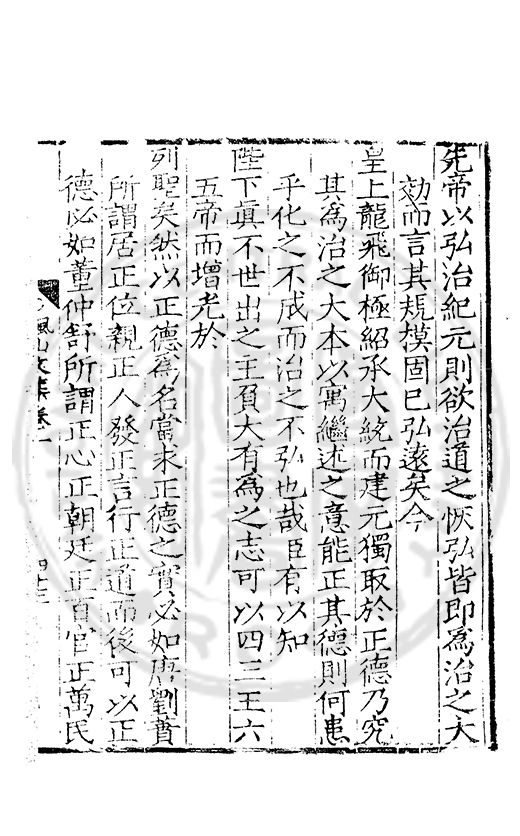 先帝以弘治紀元則欲治道之恢弘皆即爲治之大
効而言其規模固已弘遠矣今
皇上龍飛御極紹承大統而建元獨取於正德乃究
其爲治之大本以寓繼述之意能正其德則何患
乎化之不成而治之不弘也哉臣有以知
陛下眞不世出之主負大有爲之志可以四三王六
五帝而增光於
列聖矣然以正德爲名當求正德之實必如唐劉蕡
所謂居正位親正人發正言行正道而後可以正
德必如董仲舒所謂正心正朝廷正百官正萬民
楓山文集卷一
四十三